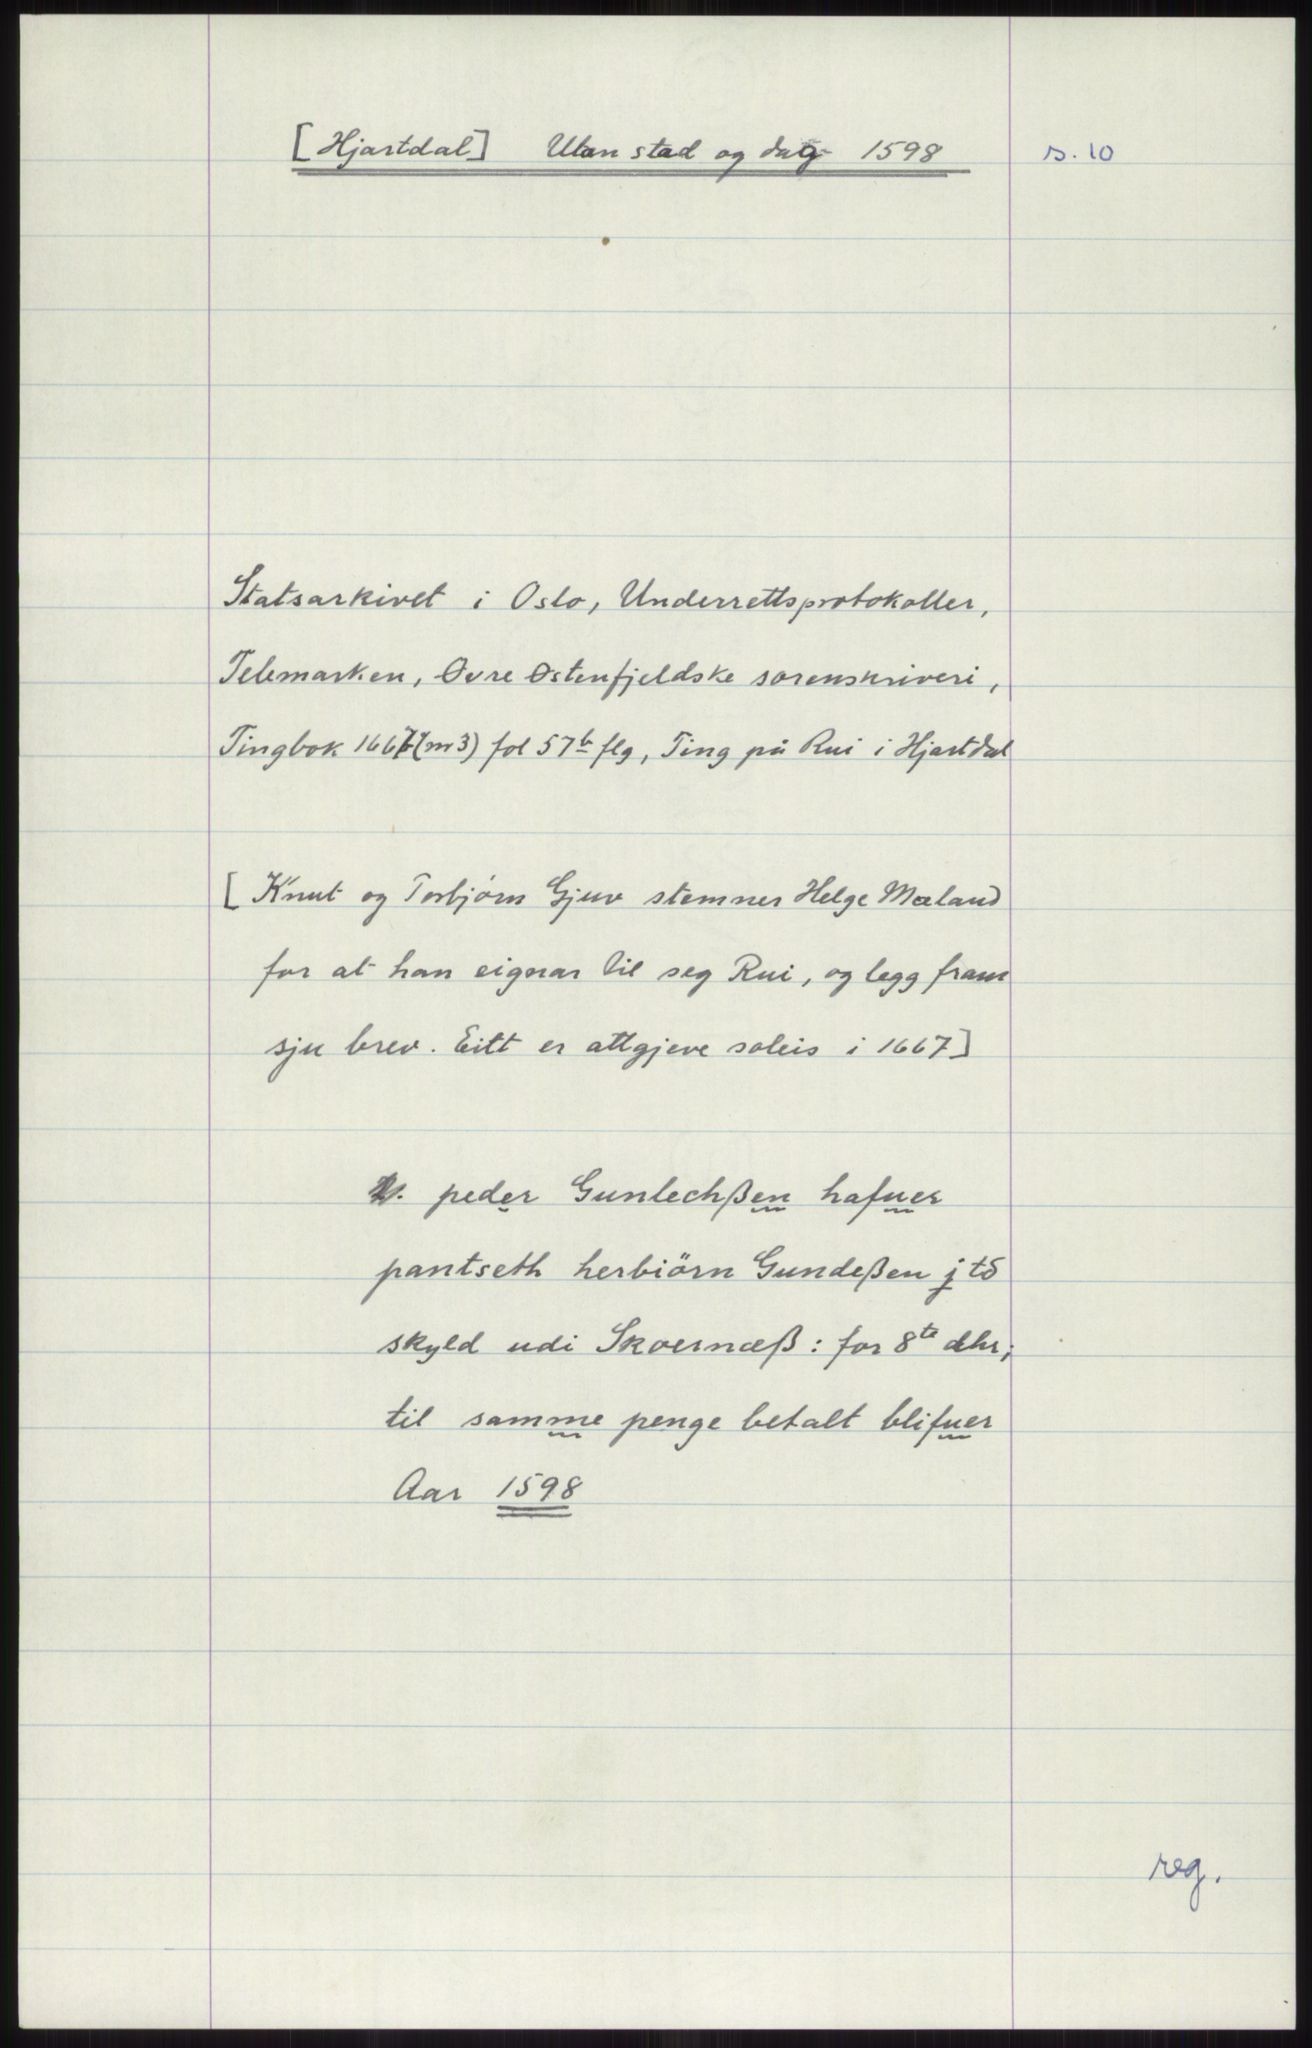 [Hjartdal] Utan stad og dag 1598
s. 10
Statsarkivet i Oslo, Underrettsprotokoller,
Telemarken, Øvre Østenfjeldske sorenskriveri,
Tingbok 1667 (nr 3) fol 57b flg, Ting på Rui i Hjartdal
[Knut og Torbjörn Gjuv stemner Helge Mæland
for at han eignar til seg Rui, og legg fram
sju brev. Eitt er attgjeve soleis i 1667]
peder Gunlechßen hafuer
pantseth herbiörn Gundeßen j td
skyld udi Skoernæß: for 8te dlr;
til samme penge betalt blifuer
Aar 1598
reg.